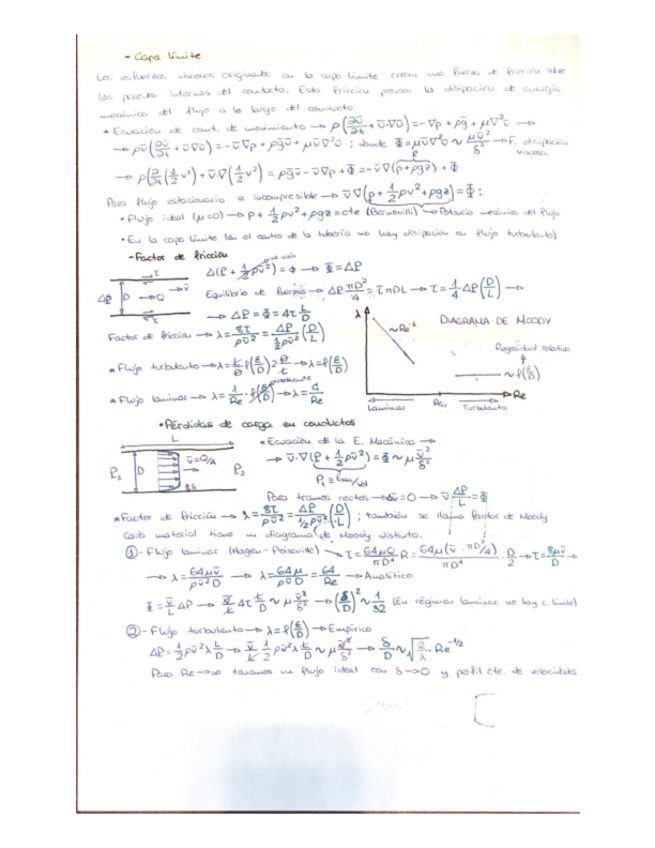 - Capa límite
Los esfuerzos viscosos originados en la capa límite crean una fuerza de fricción sobre
las paredes internas del conducto. Esta fricción provoca la disipación de energía
mecánica del flujo a lo largo del conducto.
* Ecuación de cant. de movimiento → ρ(∂v̄/∂t + v̄·∇v̄) = -∇p + ρḡ + μ∇²v̄ →
→ ρv̄(∂v̄/∂t + v̄∇v̄) = -v̄∇p + ρḡv̄ + μv̄∇²v̄ ; donde Φ = μv̄∇²v̄ ~ μv̄²/δ² → F. disipación viscosa
→ ρ(∂/∂t(½v²) + v̄·∇(½v²)) = ρḡv̄ - v̄∇p + Φ = -v̄∇(p + ρgz) + Φ
Para flujo estacionario e incompresible → v̄∇(p + ½ρv² + ρgz) = Φ :
• Flujo ideal (μ=0) → p + ½ρv² + ρgz = cte (Bernouilli) → Potencia mecánica del flujo
• En la capa límite (en el centro de la tubería no hay disipación en flujo turbulento)
- Factor de fricción
Δ(P + ½ρv̄²) = Φ → Φ = ΔP
Equilibrio de fuerzas → ΔP πD²/4 = τπDL → τ = ¼ΔP(D/L) →
→ ΔP = Φ = 4τ L/D
Factor de fricción → λ = 8τ/ρv̄² = ΔP/½ρv̄² (D/L)
* Flujo turbulento → λ = f(ε/D)
* Flujo laminar → λ = 1/Re · f(ε/D) → λ = C/Re
τ
ΔP
D
→ Q
→ v̄
τ
λ
DIAGRAMA DE MOODY
~Re⁻¹
Rugosidad relativa
~f(ε/D)
Re
Laminar
Turbulento
• Pérdidas de carga en conductos
L
P₁
D
v̄ = Q/A
P₂
δ
* Ecuación de la E. Mecánica →
→ v̄·∇(P + ½ρv̄²) = Φ ~ μ v̄²/δ²
Para tramos rectos → Δv̄ = 0 → v̄ ΔP/L = Φ
* Factor de fricción → λ = 8τ/ρv̄² = ΔP/½ρv̄² (D/L) ; también se llama factor de Moody
Cada material tiene un diagrama de Moody distinto.
① - Flujo laminar (Hagen-Poiseuille) → τ = 64μQ/πD⁴ · R = 64μ(v̄ · πD²/4)/πD⁴ · D/2 → τ = 8μv̄/D →
→ λ = 64μv̄/ρv̄²D → λ = 64μ/ρv̄D = 64/Re → Analítico
Φ = v̄/L ΔP → v̄/L 4τ L/D ~ μ v̄²/δ² → (δ/D)² ~ 1/32 (En régimen laminar no hay c. límite)
② - Flujo turbulento → λ = f(ε/D) → Empírico
ΔP = ½ρv̄²λ L/D → v̄/L ½ρv̄²λ L/D ~ μ v̄²/δ² → δ/D ~ √(2/λ) Re^(-1/2)
Para Re → ∞ tenemos un flujo ideal con δ → 0 y perfil cte. de velocidades